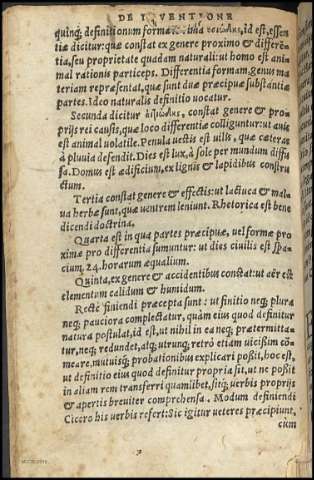 DE INVENTIONE
quinq; definitionum formæ. Prima ὀυσιώδης, id est, essen
tiæ dicitur: quæ constat ex genere proximo & differẽ-
tia, seu proprietate quadam naturali: ut homo est ani
mal rationis particeps. Differentia formam, genus ma
teriam repræsentat, quæ sunt duæ præcipuæ substantiæ
partes. Ideo naturalis definitio uocatur.
Secunda dicitur constat genere & pro-
prijs rei causis, quæ loco differentiæ colliguntur: ut auis
est animal uolatile. Penula uestis est uilis, quæ cæteras
à pluuia defendit. Dies est lux, à sole per mundum diffu
sa. Domus est ædificium, ex lignis & lapidibus constru
ctum.
Tertia constat genere & effectis: ut lactuca & mal-
ua herbæ sunt, quæ uentrem leniunt. Rhetorica est bene
dicendi doctrina.
Quarta est in qua partes præcipuæ, uel formæ pro
ximæ pro differentia sumuntur: ut dies ciuilis est spa-
cium, 24. horarum æqualium.
Quinta, ex genere & accidentibus constat: ut aër est
elementum calidum & humidum.
Rectè finiendi præcepta sunt: ut finitio neq; plura
neq; pauciora complectatur, quàm eius quod definitur
natura postulat, id est, ut nihil in ea neq; prætermitta-
tur, neq; redundet, atq; utrunq; retrò etiam uicißim cõm
meare, mutuisq; probationibus explicari poßit, hoc est,
ut definitio eius quod definitur propria sit, ut ne poßit
in aliam rem transferri quamlibet, sitq; uerbis proprijs
& apertis breuiter comprehensa. Modum definiendi
Cicero his uerbis refert: Sic igitur ueteres præcipiunt,
cùm